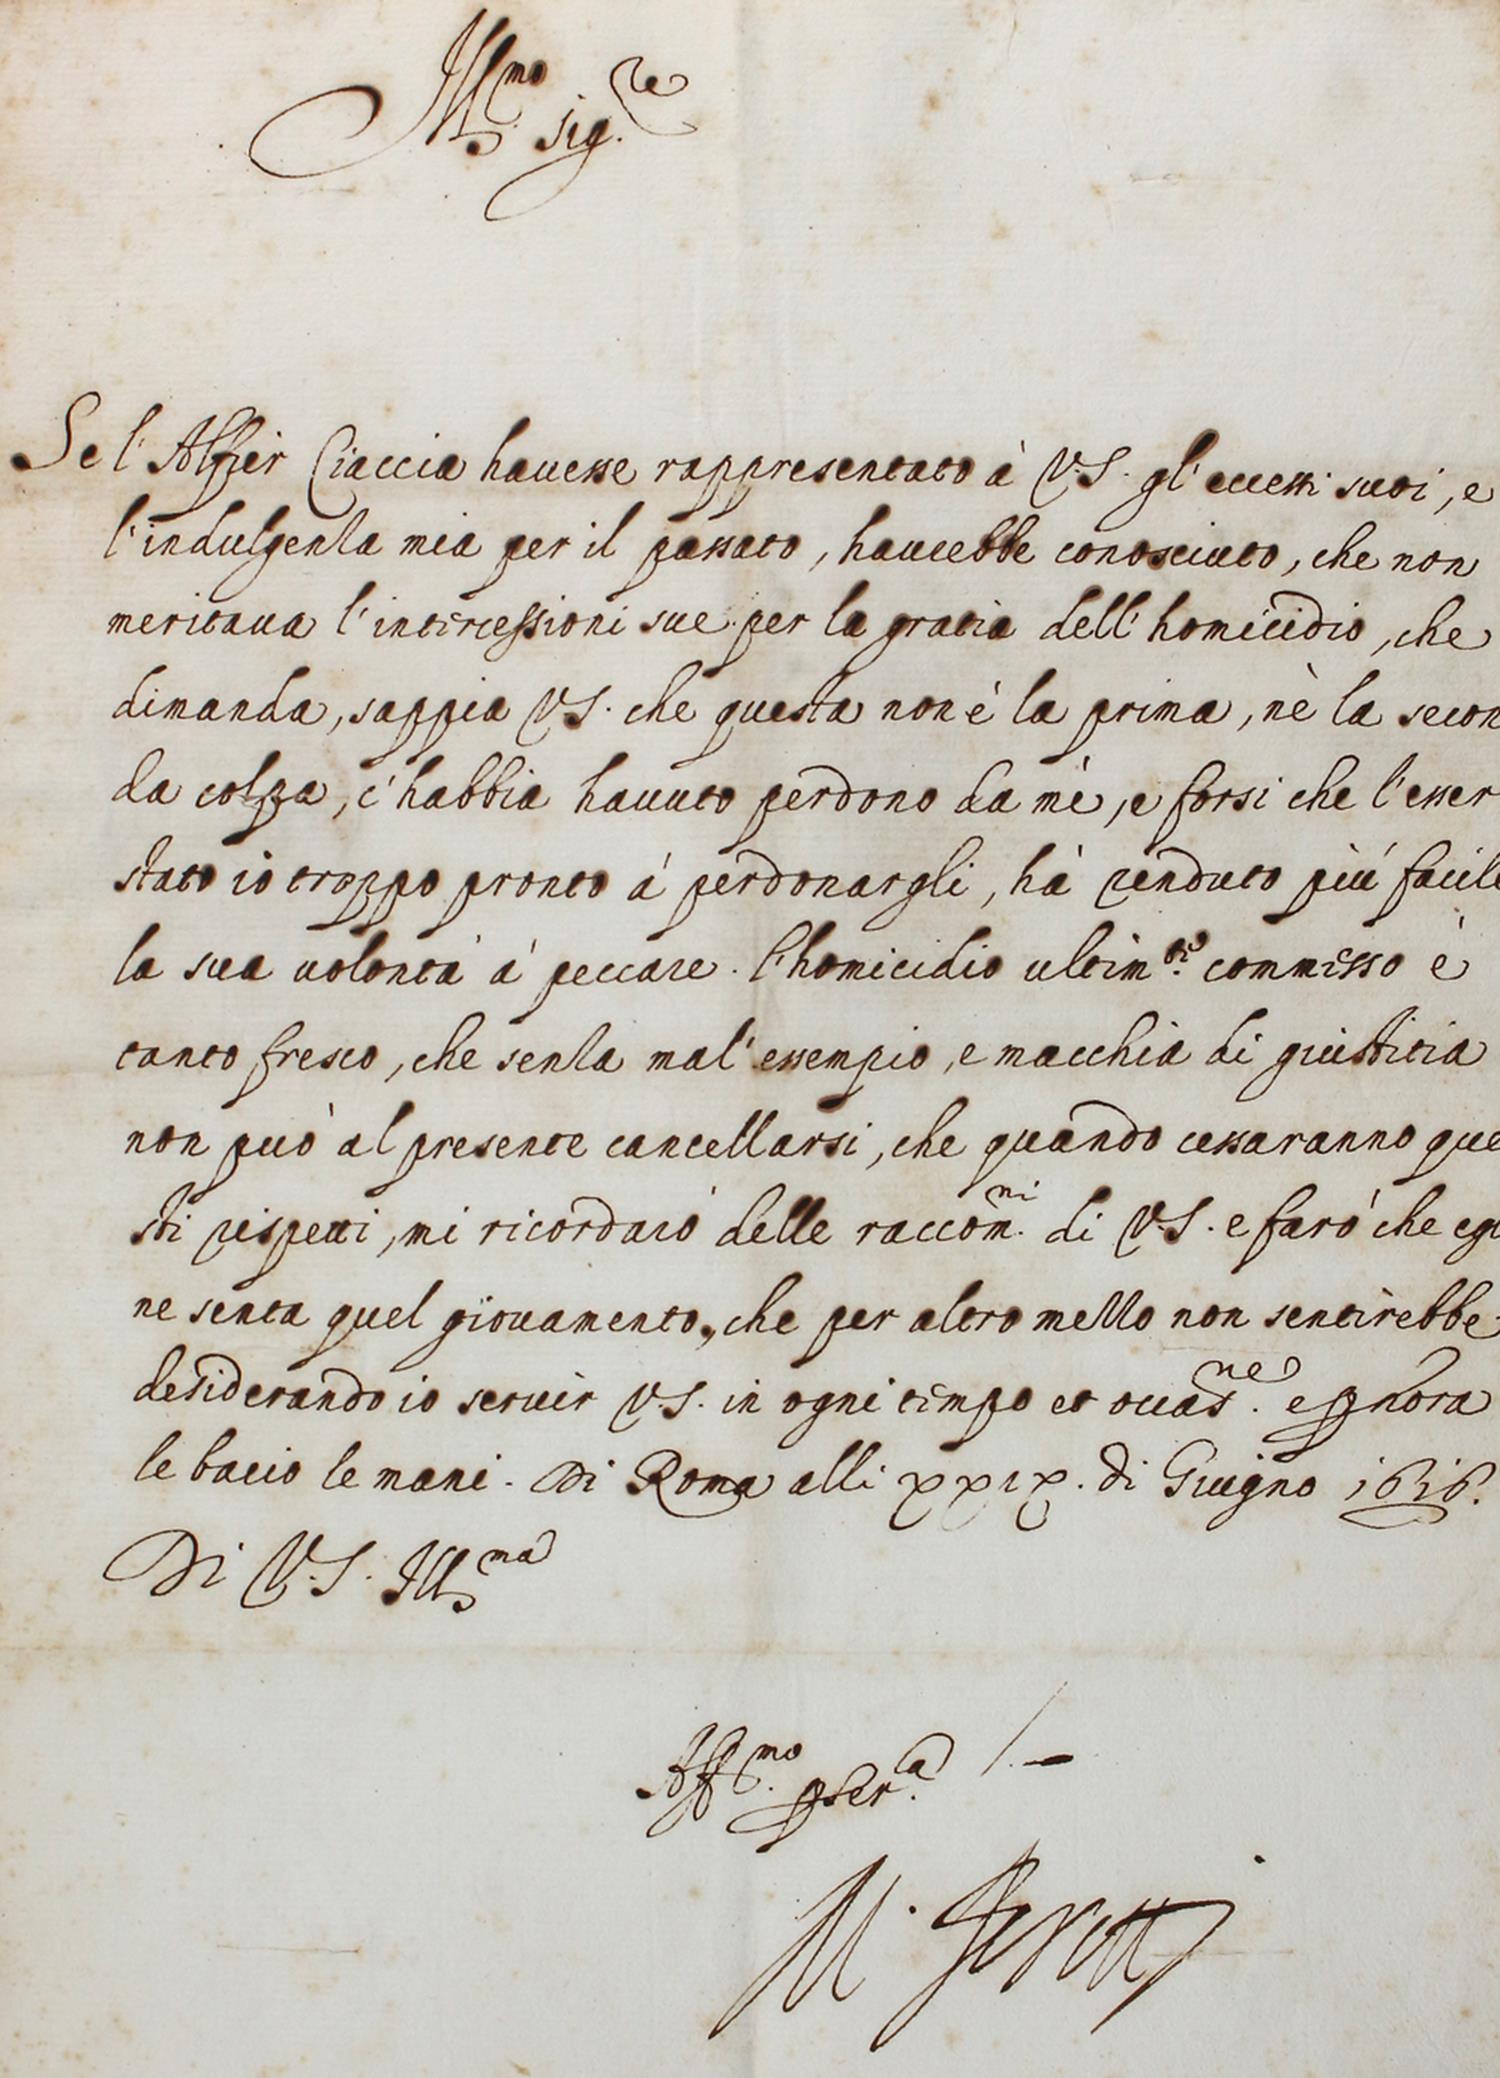 Ill.mo sig.re
Se l'Alfier Ciaccia hauesse rappresentato à V.S. gl'eccessi suoi, e
l'indulgenza mia per il passato, hauerebbe conosciuto, che non
meritaua l'intercessioni sue per la gratia dell'homicidio, che
dimanda, sappia V.S. che questa non è la prima, nè la secon
da colpa, c'habbia hauuto perdono da mè, e forsi che l'esser
stato io troppo pronto á perdonargli, hà renduto più facile
la sua uolontà á peccare. l'homicidio ultim.te commesso è
tanto fresco, che senza mal'essempio, e macchia di giustitia
non può al presente cancellarsi, che quando cessaranno que
sti rispetti, mi ricordarò delle raccom.ni di V.S. e farò che egli
ne senta quel giouamento, che per altro mezzo non sentirebbe
desiderando io seruir V.S. in ogni tempo et occas.ne e
le bacio le mani. Di Roma alli xxix. di Giugno 1616.
Di V.S. Ill.ma
Aff.mo per ser.a
M. Peretti